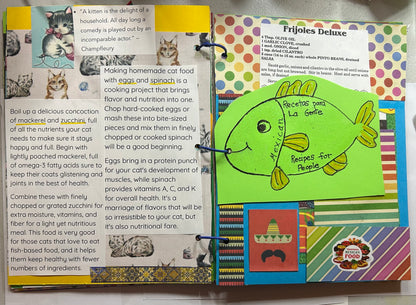 "A kitten is the delight of a
household. All day long a
comedy is played out by an
incomparable actor." -
Champfleury
Making homemade cat food
with eggs and spinach is a
cooking project that brings
flavor and nutrition into one.
Chop hard-cooked eggs or
mash these into bite-sized
pieces and mix them in finely
chopped or cooked spinach
will be a good beginning.
Eggs bring in a protein punch
for your cat's development of
muscles, while spinach
provides vitamins A, C, and K
for overall health. It's a
marriage of flavors that will
be so irresistible to your cat, but
it's also nutritional fare.
Boil up a delicious concoction
of mackerel and zucchini, full
of all the nutrients your cat
needs to make sure it stays
happy and full. Begin with
lightly poached mackerel, full
of omega-3 fatty acids sure to
keep their coats glistening and
joints in the best of health.
Combine these with finely
chopped or grated zucchini for
extra moisture, vitamins, and
fiber for a light yet nutritious
meal. This food is very good
for those cats that love to eat
fish-based food, and it helps
them keep healthy with fewer
numbers of ingredients.
Frijoles Deluxe
OLIVE OIL
1 GARLIC CLOVE, crushed
ONION, diced
dried CILANTRO
PINTO BEANS, drained
SALSA
Sauté garlic, onions and cilantro in the olive oil until onions
are limp but not browned. Stir in beans. Heat and serve with
salsa, if desired.
Recetas para
La Gente
Mexican
Recipes for
People
MEXICAN
FOOD